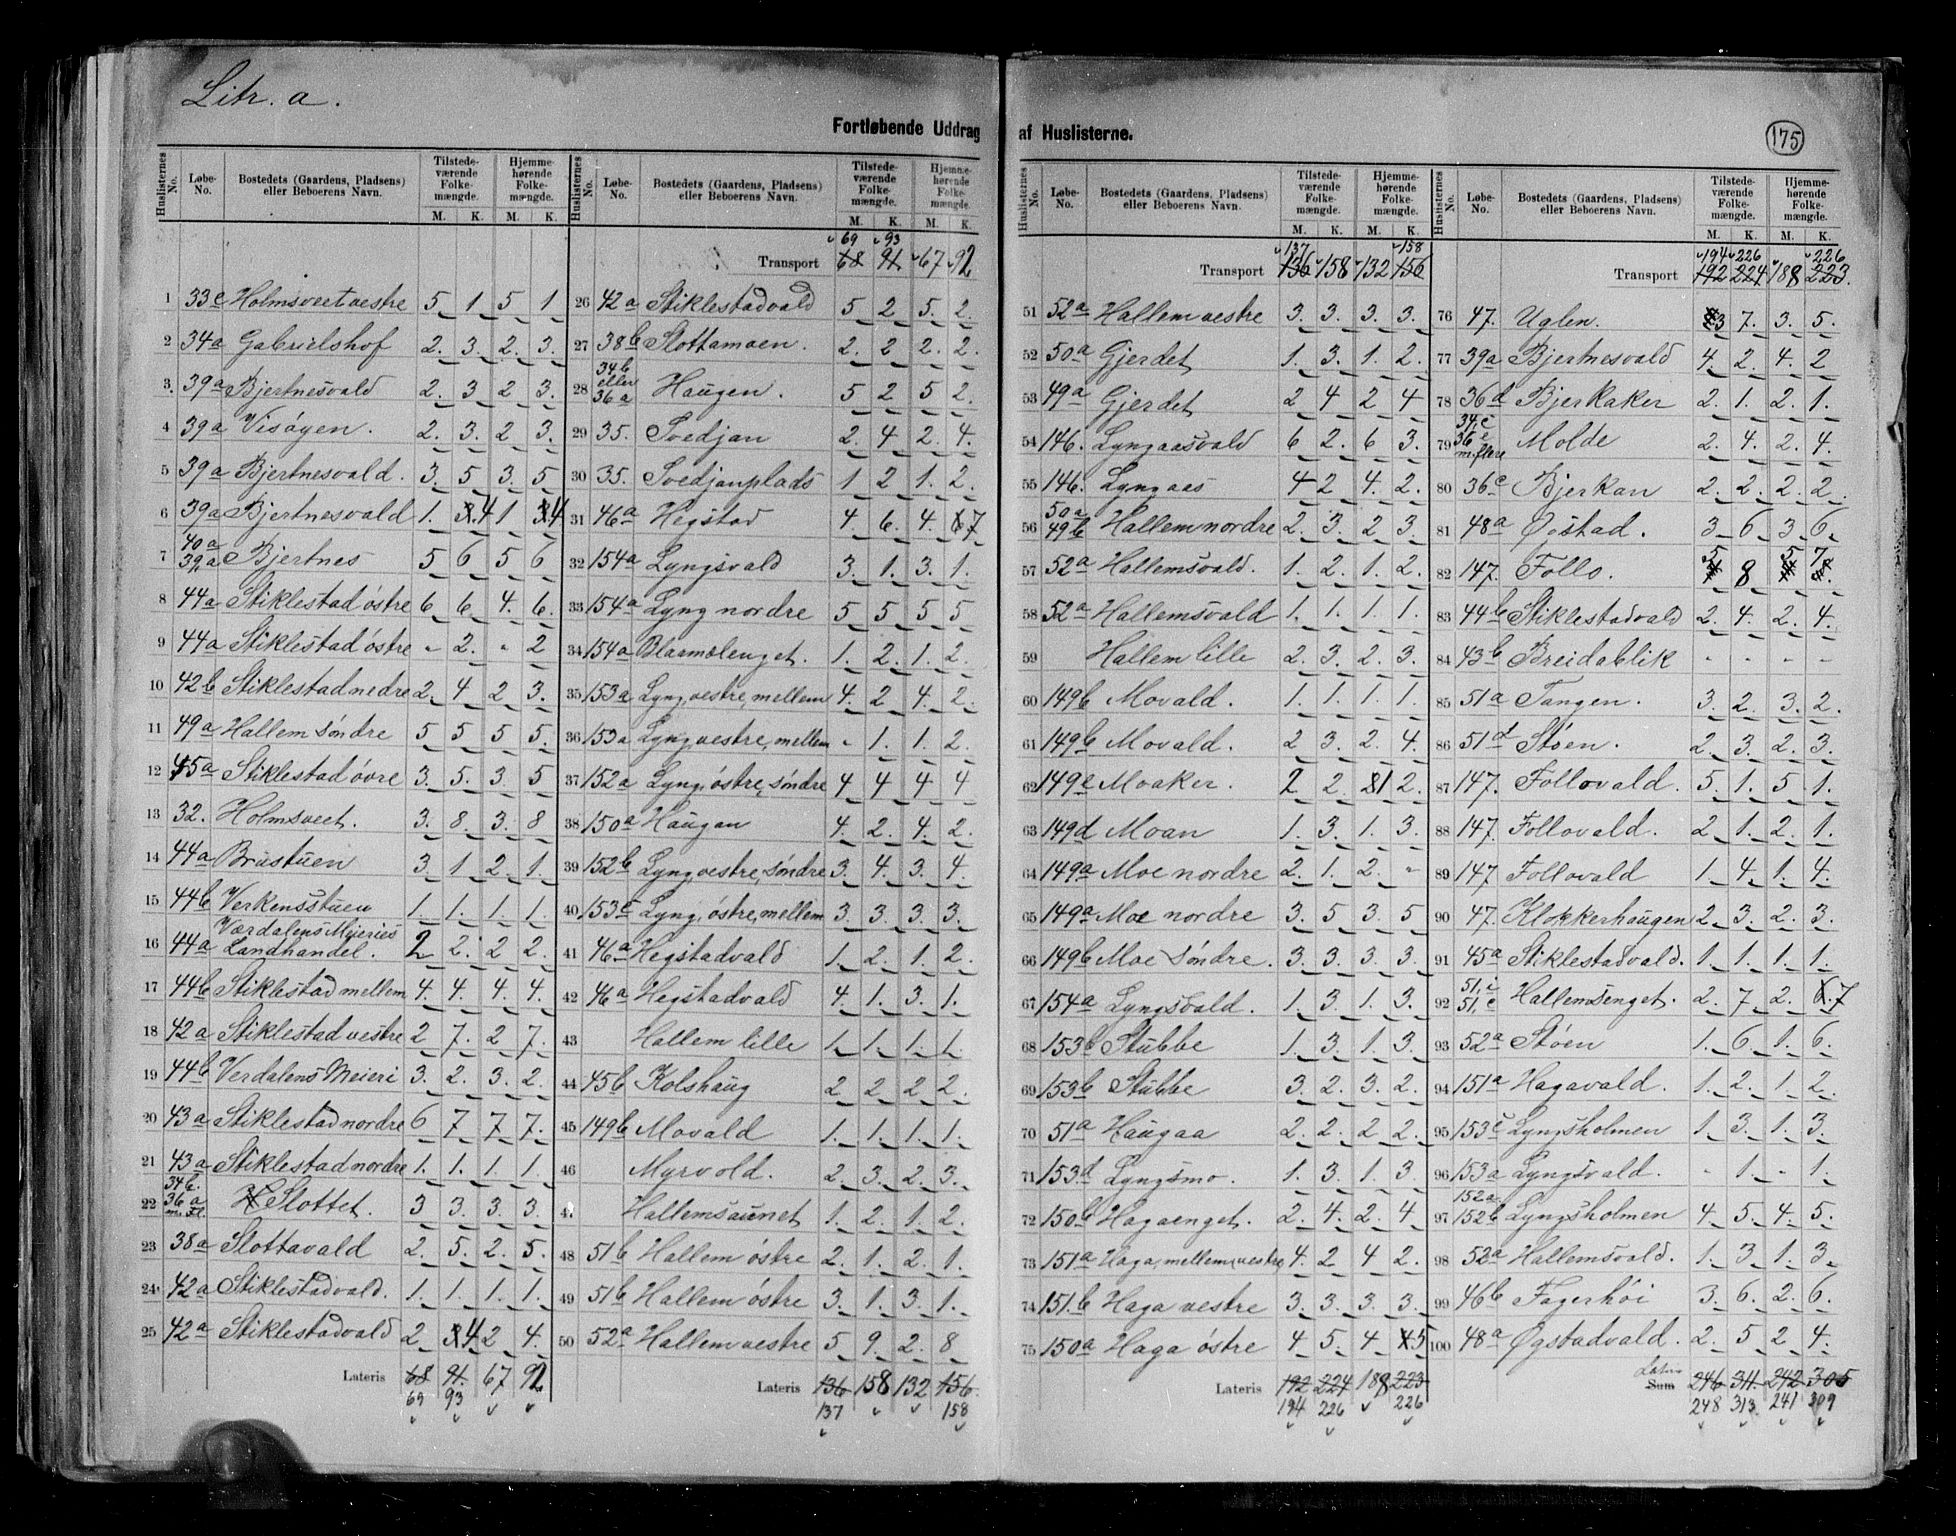 Litr. a.
Fortløbende Uddrag af Huslisterne.
175
Huslisternes No. | Løbe-No. | Bostedets (Gaardens, Pladsens) eller Beboerens Navn. | Tilstede-værende Folke-mængde. M. K. | Hjemme-hørende Folke-mængde. M. K.
1 33c Holmsveet vestre 5 1 5 1
2 34a Gabrielshof 2. 3. 2. 3.
3. 39a Bjertnesvald 2. 3 2 3.
4 39a Visøgen. 2. 3. 2 3.
5 39a Bjertnesvald. 3. 5 3. 5
6 39a Bjertnesvald 1. 3. 4 1 3 4
7 40a 39,a Bjertnes 5 6 5 6
8 44a Stiklestad østre 6 6 4. 6.
9 44a Stiklestad østre " 2. " 2
10 42b Stiklestad nedre 2 4 2 3.
11 49a Hallem søndre 5 5 5 5.
12 45a Stiklestad øvre 3. 5. 3. 5
13 32. Holmsveet. 3. 8. 3. 8
14 44a Brustuen 3 1 2 1.
15 44b Verkensstuen 1. 1. 1. 1.
16 44a Værdalens Mejeries Landhandel. 2 2. 2 2.
17 44b Stiklestad mellem 4. 4. 4. 4.
18 42a Stiklestad vestre 2 7. 2 7.
19 44b Verdalens Meieri 3. 2. 3. 2.
20 43a Stiklestad nordre 6 7 7 7.
21 43a Stiklestad nordre 1. 1. 1. 1.
22 34b. 36a m.fl. Slottet. 3 3. 3. 3.
23 38a Slottavald 2. 5. 2. 5.
24 42a Stiklestadvald. 1. 1. 1. 1.
25 42a Stiklestadvald 2 3 4 2 4.
Lateris 68 91. 67 92
69 93
Huslisternes No. | Løbe-No. | Bostedets (Gaardens, Pladsens) eller Beboerens Navn. | Tilstede-værende Folke-mængde. M. K. | Hjemme-hørende Folke-mængde. M. K.
69 93
Transport 68 91 67 92
26 42a Stiklestadvald 5 2 5. 2.
27 38b Slottamoen. 2. 2 2. 2.
28 34b eller 36a Haugen. 5 2 5 2.
29 35. Svedjan 2. 4 2. 4.
30 35. Svedjanplads 1 2 1. 2.
31 46a Hegstad 4. 6. 4. 6 7
32 154a Lyngsvald 3. 1. 3. 1.
33 154a Lyng nordre 5 5 5 5
34 154a Blarmelenget. 1. 2. 1. 2.
35 153a Lyng, vestre, mellem 4. 2 4. 2
36 153a Lyng, vestre, mellem " 1. 1. 2.
37 152a Lyng, østre, søndre 4 4 4 4
38 150a Haugan 4. 2. 4. 2.
39 152b Lyng, vestre, søndre 3. 4. 3. 4.
40 153c Lyng, østre, mellem 3. 3. 3. 3.
41 46a Hegstadvald 1. 2. 1. 2.
42 46a Hegstadvald 4. 1. 3. 1.
43 Hallem lille 1. 1. 1. 1.
44 45b Kolshaug 2 2 2 2.
45 149b Movald 1. 1. 1. 1.
46 Myrvold. 2. 3. 2. 3.
4. Hallemsaunet 1. 2. 1. 2.
48 51b Hallem østre 2. 1. 2. 1.
49 51b Hallem østre 3. 1. 3. 1.
50 52a Hallem vestre 5 9 2. 8
Lateris 136 158 132 156.
137 158
Huslisternes No. | Løbe-No. | Bostedets (Gaardens, Pladsens) eller Beboerens Navn. | Tilstede-værende Folke-mængde. M. K. | Hjemme-hørende Folke-mængde. M. K.
137 158
Transport 136 158 132 156
51 52a Hallem vestre 3. 3. 3. 3.
52 50a Gjerdet 1. 3. 1. 2.
53 49a Gjerdet 2 4 2 4
54 146. Lyngaasvald 6 2. 6 3.
55 146. Lyngaas 4 2 4. 2.
56 50a 49b Hallem nordre 2. 3. 2 3.
57 52a Hallemsvald. 1. 2. 1. 2.
58 52a Hallemsvald 1. 1. 1. 1.
59 Hallem lille 2. 3. 2. 3.
60 149b Movald. 1. 1. 1. 1.
61 149b Movald. 2 3. 2. 4.
62 149e Moaker. 2 2. 2 1 2.
63 149d Moan 1. 3. 1. 3.
64 149a Moe nordre 2. 1. 2. "
65 149a Moe nordre 3. 5 3. 5
66 149b Moe søndre. 3. 3. 3. 3.
67 154a Lyngsvald. 1. 3. 1. 3.
68 153b Stubbe 1. 3. 1. 3.
69 153b Stubbe 3. 2. 3. 2.
70 51a Haugaa 2. 2. 2 2.
71 153d Lyngsmo. 1. 3. 1. 3
72 150b Hagaenget. 2. 4. 2. 4
73 151a Haga, mellem, vestre 4. 2 4 2.
74 151.b Haga vestre 3. 3. 3. 3.
75 150a Haga østre 4 5. 4 4 5
Lateris 192 224 188 223
194 226 226
Huslisternes No. | Løbe-No. | Bostedets (Gaardens, Pladsens) eller Beboerens Navn. | Tilstede-værende Folke-mængde. M. K. | Hjemme-hørende Folke-mængde. M. K.
194 226 226
Transport 192 224 188 223.
76 47. Uglen. 3 7. 3. 5.
77 39a Bjertnesvald 4. 2. 4. 2
78 36d Bjerkaker 2. 1. 2. 1.
79 34,c 36e m.flere Molde 2. 4. 2. 4.
80 36c Bjerkan 2. 2. 2. 2.
81 48a Øgstad. 3 6 3 6
82 147. Follo. 5 8 5 7
83 44b Stiklestadvald 2. 4. 2. 4.
84 43b Breidablik - - - -
85 51a Tangen. 3. 2. 3. 2.
86 51d Støen. 2. 3. 2. 3.
87 147. Follovald. 5. 1. 5 1.
88 147. Follovald. 2. 1. 2. 1.
89 147. Follovald 1. 4. 1. 4.
90 47. Klokkerhaugen 2. 3. 2. 3.
91 45a Stiklestadvald. 1. 1. 1. 1.
92 51,i 51,c Hallemsenget. 2. 7 2. 6. 7
93 52a Støen 1. 6. 1. 6.
94 151a Hagavald. 1. 2. 1. 2
95 153c Lyngsholmen 1. 3. 1. 3.
96 153a Lyngsvald. " 1. " 1.
97 152a 152b Lyngsholmen 4. 5. 4. 5.
98 52a Hallemsvald. 1. 3 1. 3
99 46b Fagerhøi 3. 6. 2. 6.
100 48a Øgstadvald. 2. 5 2. 4.
Lateris
Sum 246 311. 242 305
248 313 241 309